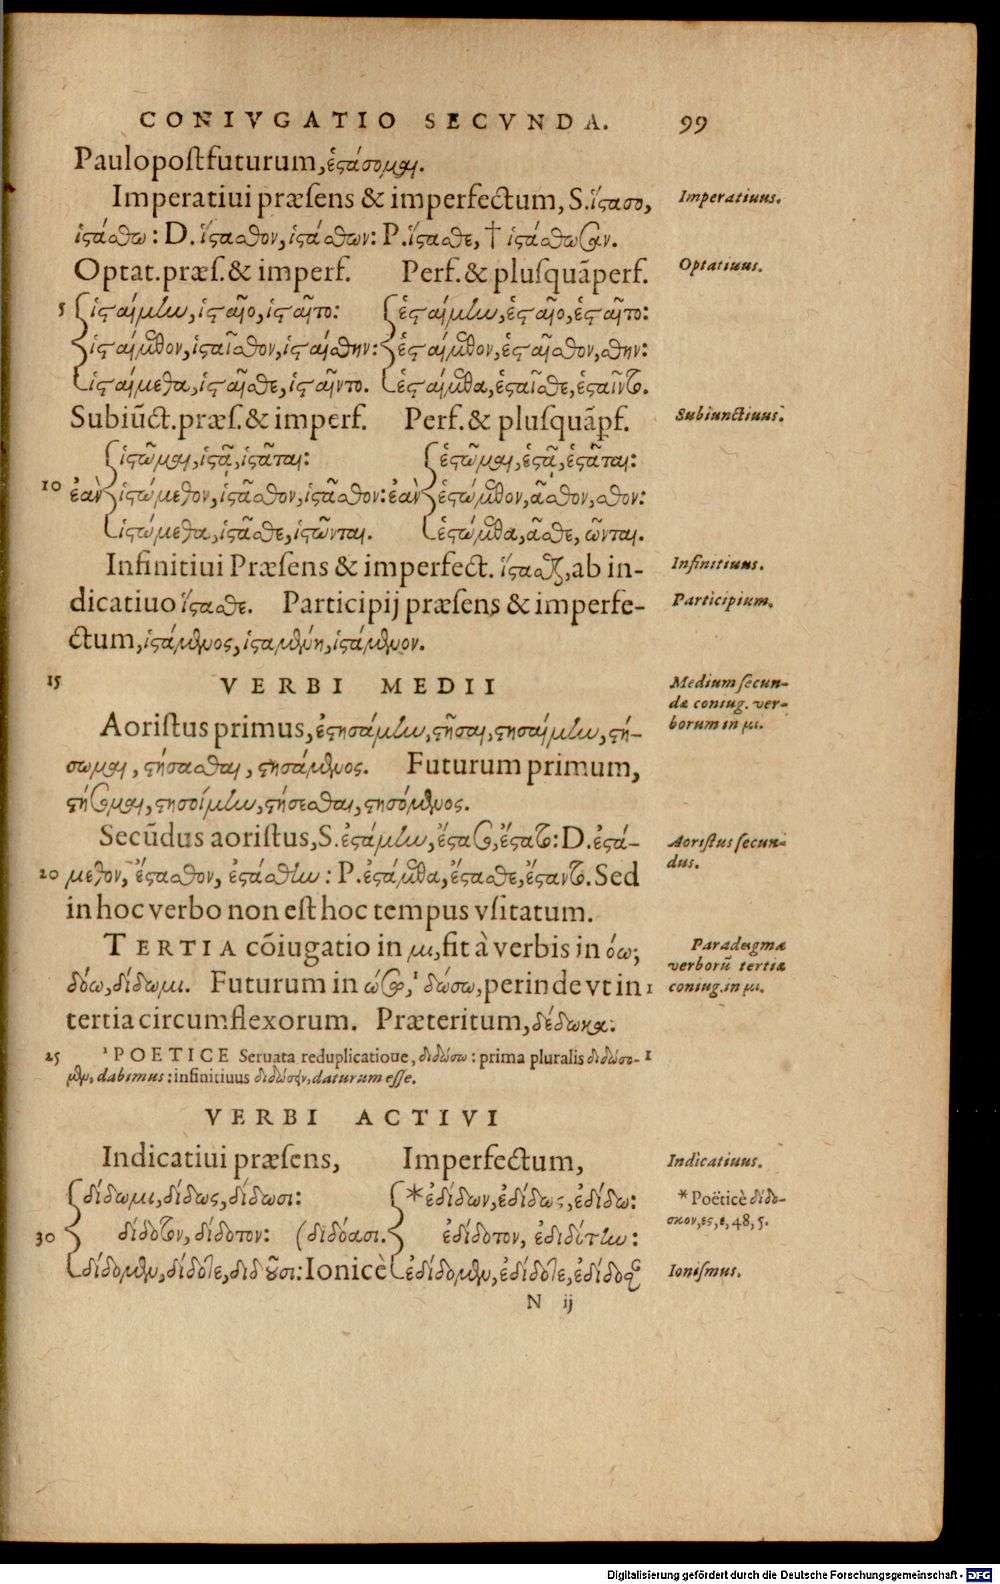 CONIVGATIO SECVNDA. 99
Paulopostfuturum, ἑστάσομαι.
Imperatiui præsens & imperfectum, S. ἵστασο,
Imperatiuus.
ἱστάσθω: D. ἵστασθον, ἱστάσθων: P. ἵστασθε, † ἱστάσθωσαν.
Optat. præs. & imperf. Perf. & plusquāperf.
Optatiuus.
5 ἱσταίμην, ἱσταῖο, ἱσταῖτο: ἑσταίμην, ἑσταῖο, ἑσταῖτο:
ἱσταίμεθον, ἱσταῖσθον, ἱσταίσθην: ἑσταίμεθον, ἑσταῖσθον, σθην:
ἱσταίμεθα, ἱσταῖσθε, ἱσταῖντο. ἑσταίμεθα, ἑσταῖσθε, ἑσταῖντο.
Subiūct. præs. & imperf. Perf. & plusquāpf.
Subiunctiuus.
ἱστῶμαι, ἱστᾷ, ἱστᾶται: ἑστῶμαι, ἑστᾷ, ἑστᾶται:
10 ἐὰν ἱστώμεθον, ἱστᾶσθον, ἱστᾶσθον: ἐὰν ἑστώμεθον, ᾶσθον, σθον:
ἱστώμεθα, ἱστᾶσθε, ἱστῶνται. ἑστώμεθα, ᾶσθε, ῶνται.
Infinitiui Præsens & imperfect. ἵστασθαι, ab in-
Infinitiuus.
dicatiuo ἵστασθε. Participij præsens & imperfe-
Participium.
ctum, ἱστάμενος, ἱσταμένη, ἱστάμενον.
15 VERBI MEDII
Medium secun-
dæ coniug. ver-
borum in μι.
Aoristus primus, ἐστησάμην, στῆσαι, στησαίμην, στή-
σωμαι, στήσασθαι, στησάμενος. Futurum primum,
στήσομαι, στησοίμην, στήσεσθαι, στησόμενος.
Secūdus aoristus, S. ἐστάμην, ἔστασο, ἔστατο: D. ἐστά-
Aoristus secun-
dus.
20 μεθον, ἔστασθον, ἐστάσθην: P. ἐστάμεθα, ἔστασθε, ἔσταντο. Sed
in hoc verbo non est hoc tempus vsitatum.
TERTIA cōiugatio in μι, fit à verbis in όω;
Paradeigma
verborū tertiæ
coniug. in μι.
δόω, δίδωμι. Futurum in ώσω, ¹ δώσω, perinde vt in 1
tertia circumflexorum. Præteritum, δέδωκα:
25 ¹ POETICE Seruata reduplicatione, διδώσω: prima pluralis διδώσο- 1
μεν, dabimus: infinitiuus διδώσειν, daturum esse.
VERBI ACTIVI
Indicatiui præsens, Imperfectum,
Indicatiuus.
δίδωμι, δίδως, δίδωσι: * ἐδίδων, ἐδίδως, ἐδίδω:
* Poëticè δίδο-
σκον, ες, ε, 48, 5.
30 δίδοτον, δίδοτον: (διδόασι. ἐδίδοτον, ἐδιδότην:
δίδομεν, δίδοτε, διδοῦσι: Ionicè ἐδίδομεν, ἐδίδοτε, ἐδίδοσαν
Ionismus.
N ij
Digitalisierung gefördert durch die Deutsche Forschungsgemeinschaft - DFG